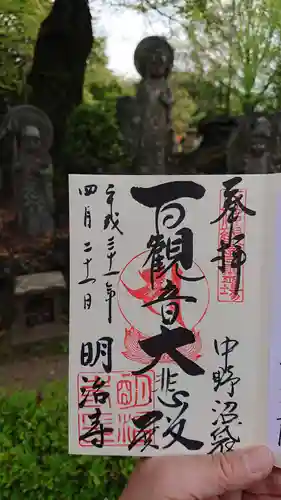 奉拝
中野沼袋
百観音大悲殿
明治寺
平成三十一年
四月二十一日